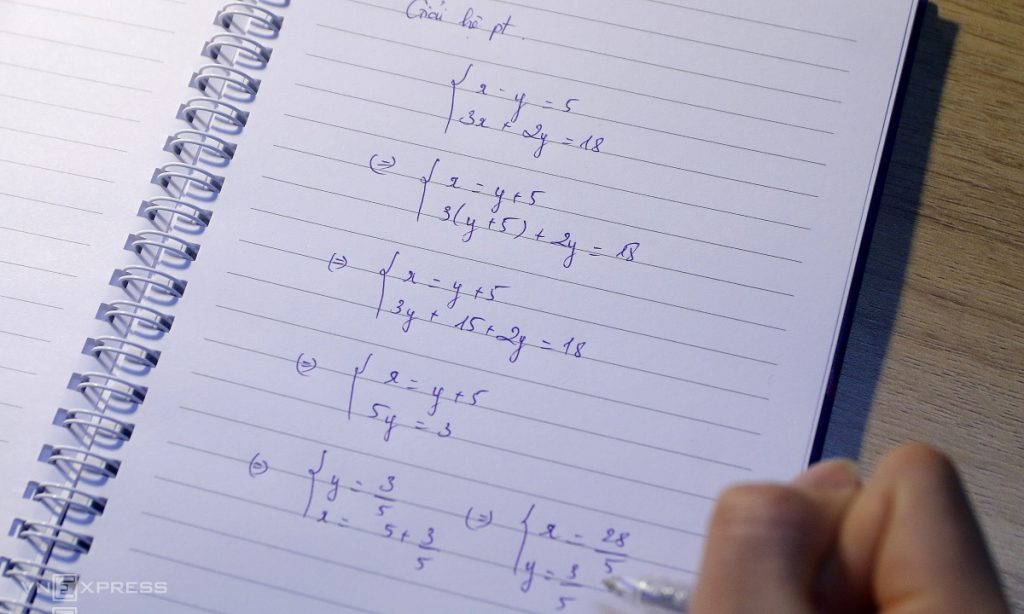 Giải hệ pt.
{ x - y = 5
3x + 2y = 18
(=) { x = y + 5
3(y + 5) + 2y = 18
(=) { x = y + 5
3y + 15 + 2y = 18
(=) { x = y + 5
5y = 3
(=) { y = 3/5
x = 5 + 3/5
(=) { x = 28/5
y = 3/5
VNEXPRESS